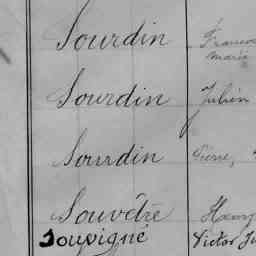 Sourdin Francois
Marie
Sourdin Julien
Sourdin Pierre,
Souvêtre Henry
Souvigné Victor Ju